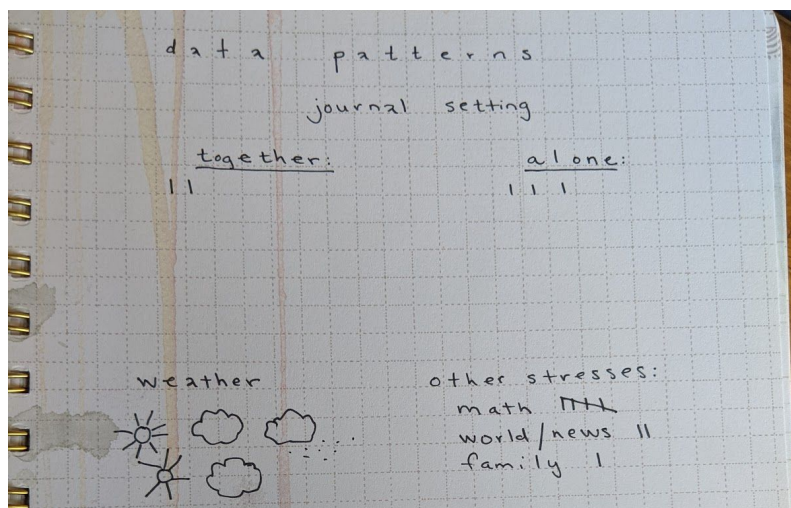 data patterns
journal setting
together: alone:
|| |||
weather
other stresses:
math
world/news ||
family |